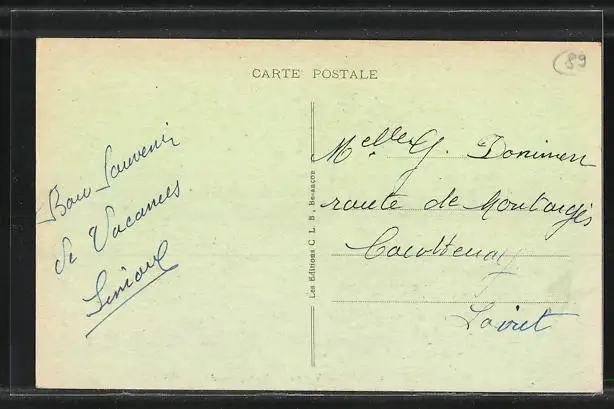 CARTE POSTALE
89
Bon Souvenir
de Vacances
Melle G.
route de Montargis
Courtenay
Loiret
Les Editions C. L. B., Besançon